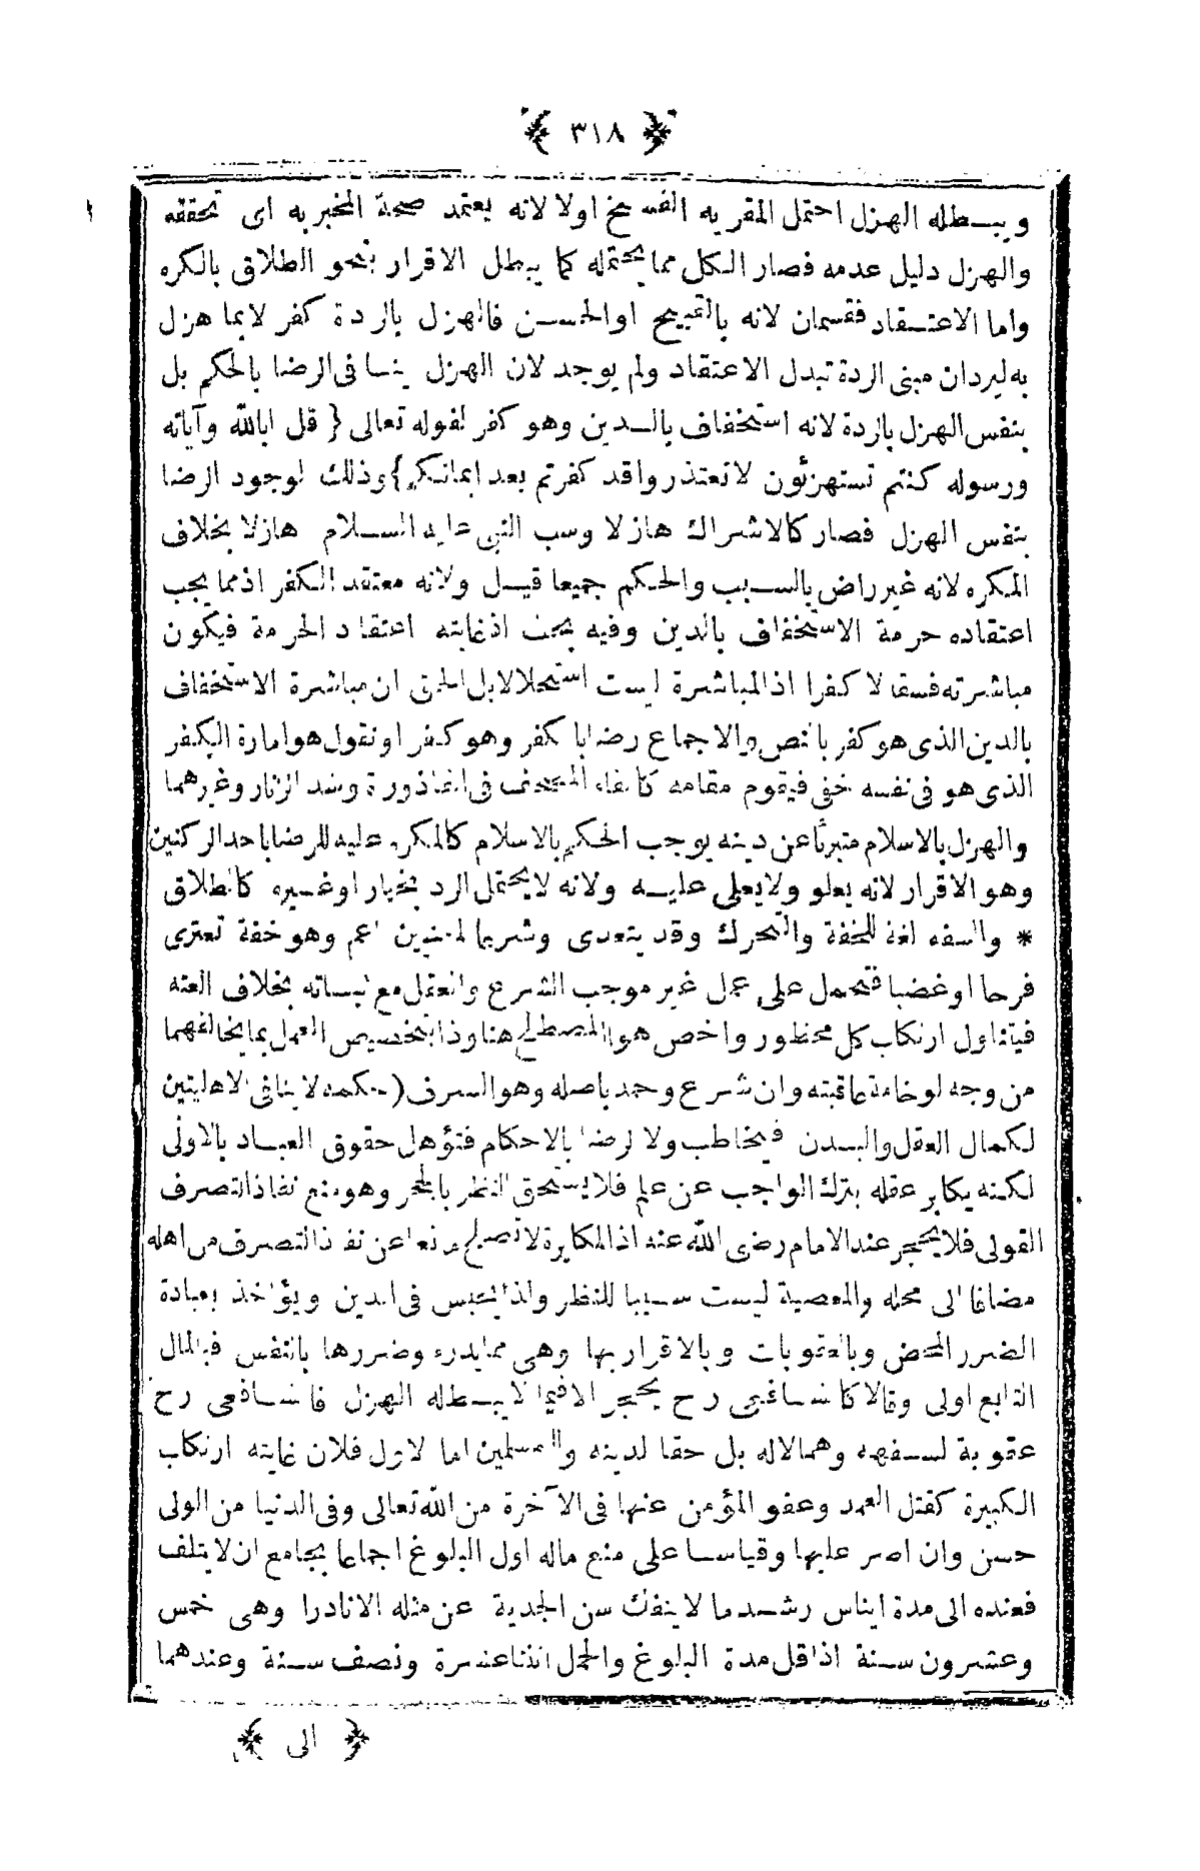 ﴿ ٣١٨ ﴾
ويبطله الهزل احتمل المقر به الفسخ اولا لانه يعتمد صحة المخبر به اى تحققه
والهزل دليل عدمه فصار الكل مما يحتمله كما يبطل الاقرار بنحو الطلاق بالكره
واما الاعتقاد فقسمان لانه بالقبيح او الحسن فالهزل بالردة كفر لا بما هزل
به ليرد ان مبنى الردة تبدل الاعتقاد ولم يوجد لان الهزل ينافى الرضا بالحكم بل
بنفس الهزل بالردة لانه استخفاف بالدين وهو كفر لقوله تعالى { قل ابالله وآياته
ورسوله كنتم تستهزئون لا تعتذروا قد كفرتم بعد ايمانكم } وذلك لوجود الرضا
بنفس الهزل فصار كالاشراك هازلا وسب النبى عليه السلام هازلا بخلاف
المكره لانه غير راض بالسبب والحكم جميعا قيل ولانه معتقد الكفر اذ مما يجب
اعتقاده حرمة الاستخفاف بالدين وفيه بحث اذ غايته اعتقاد الحرمة فيكون
مباشرته فسقا لا كفرا اذ المباشرة ليست استحلالا بل الحق ان مباشرة الاستخفاف
بالدين الذى هو كفر بالنص والاجماع رضا بالكفر وهو كفر او نقول هو امارة الكفر
الذى هو فى نفسه خفى فيقوم مقامه كالقاء المصحف فى القاذورة وشد الزنار وغيرهما
والهزل بالاسلام متبرئا عن دينه يوجب الحكم بالاسلام كالمكره عليه للرضا باحد الركنين
وهو الاقرار لانه يعلو ولا يعلى عليه ولانه لا يحتمل الرد بخيار او غيره كالطلاق
* والسفه لغة للخفة والتحرك وقد يتعدى وشرعا لمعنيين اعم وهو خفة تعترى
فرحا او غضبا فتحمل على عمل غير موجب الشرع والعقل مع ثباته بخلاف العته
فيتناول ارتكاب كل محظور واخص هو المصطلح هنا وذا بتخصيص العمل بما يخالفهما
من وجه لوخامة عاقبته وان شرع وحمد باصله وهو السرف (حكمه لا ينافى الاهليتين
لكمال العقل والبدن فيخاطب ولا لرضا بالاحكام فتؤهل حقوق العباد بالاولى
لكنه يكابر عقله بترك الواجب عن علم فلا يستحق النظر بالحجر وهو منع نفاذ التصرف
القولى فلا يحجر عند الامام رضى الله عنه اذ المكابرة لا تصلح منعا عن نفاذ التصرف من اهله
مضافا الى محله والمعصية ليست سببا للنظر ولذا يحبس فى الدين ويؤاخذ بعبادة
الضرر المحض وبالعقوبات وبالاقرار بها وهى مما يدرء وضررها بالنفس فبالمال
التابع اولى وقالا كالشافعى رح يحجر الا فيما لا يبطله الهزل فالشافعى رح
عقوبة لسفهه وهما لاله بل حقا لدينه وللمسلمين اما لاول فلان غايته ارتكاب
الكبيرة كقتل العمد وعفو المؤمن عنها فى الآخرة من الله تعالى وفى الدنيا من الولى
حسن وان اصر عليها وقياسا على منع ماله اول البلوغ اجماعا بجامع ان لا يتلف
فعنده الى مدة ايناس رشد ما لا ينفك سن الجدية عن مثله الا نادرا وهى خمس
وعشرون سنة اذ اقل مدة البلوغ والحمل اثنتا عشرة ونصف سنة وعندهما
﴿ الى ﴾